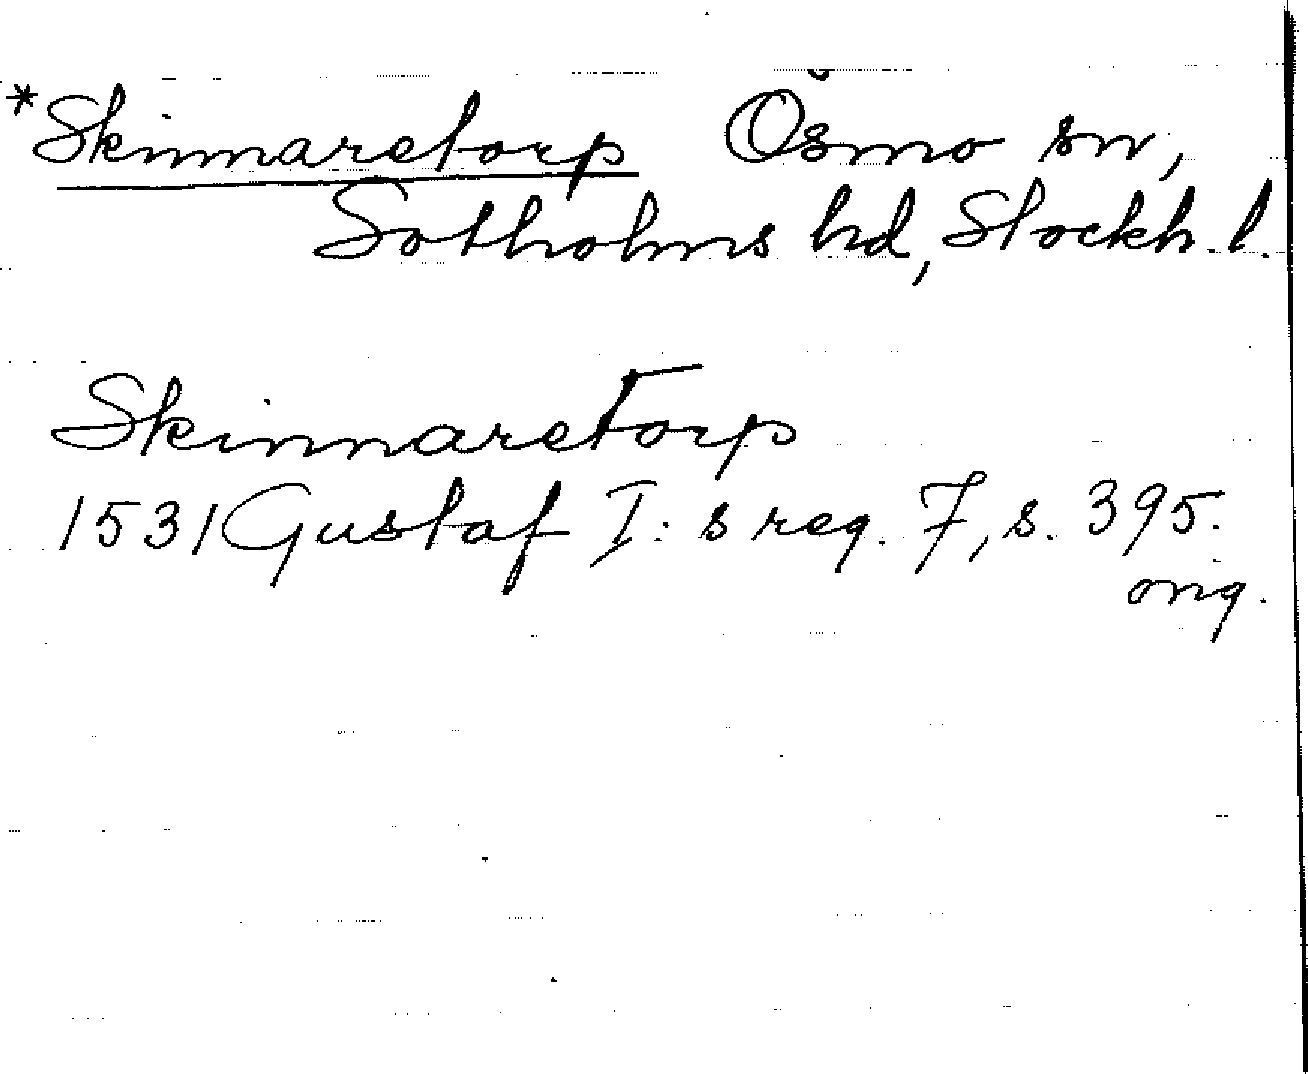 *Skinnaretorp Ösmo sn,
Sotholms hd, Stockh. l.
Skinnaretorp
1531 Gustaf I:s reg. 7, s. 395.
orig.